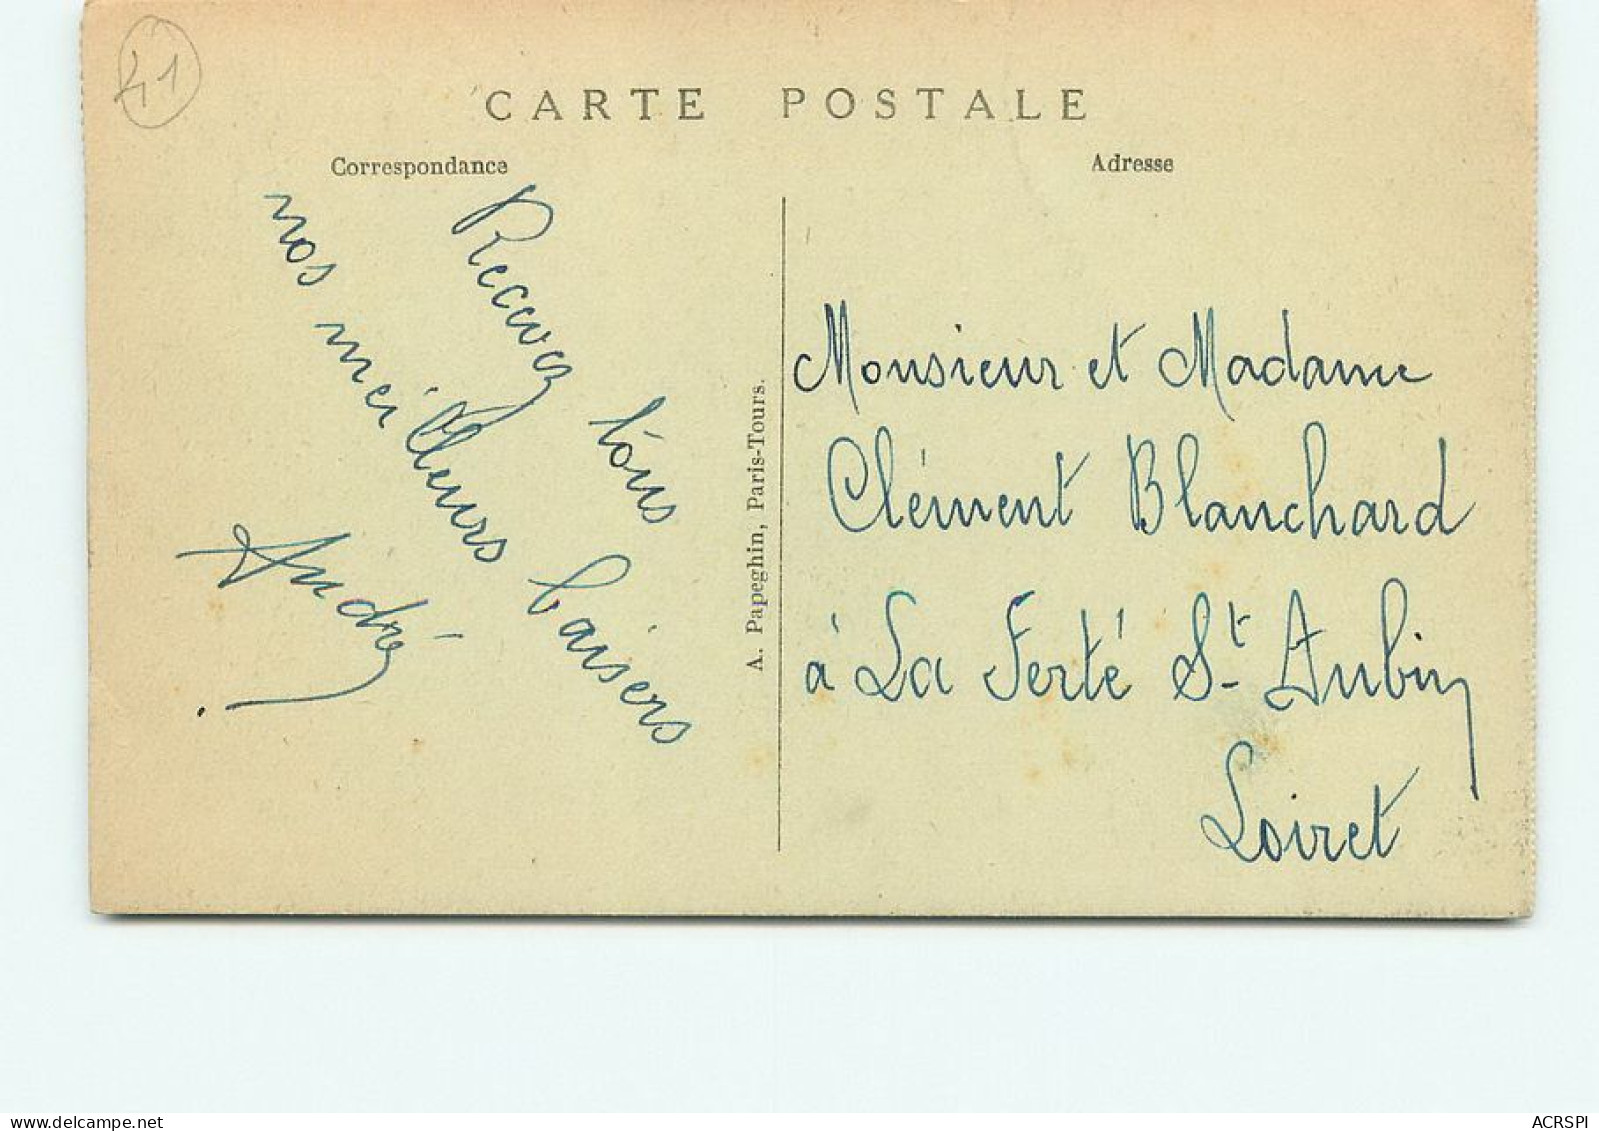 41
CARTE POSTALE
Correspondance
Adresse
Recevez tous
nos meilleurs baisers
André
A. Papeghin, Paris-Tours.
Monsieur et Madame
Clément Blanchard
à La Ferté St Aubin
Loiret
www.delcampe.net
ACRSPI